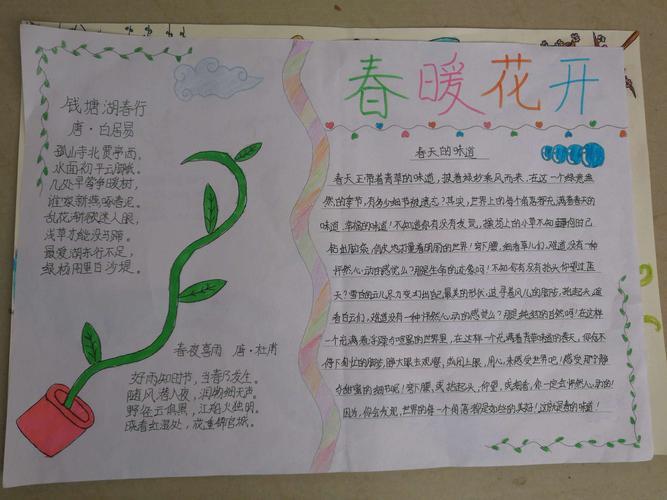 春暖花开
钱塘湖春行
唐·白居易
孤山寺北贾亭西。
水面初平云脚低。
几处早莺争暖树,
谁家新燕啄春泥。
乱花渐欲迷人眼,
浅草才能没马蹄。
最爱湖东行不足,
绿杨阴里白沙堤。
春夜喜雨 唐·杜甫
好雨知时节,当春乃发生。
随风潜入夜,润物细无声。
野径云俱黑,江船火独明。
晓看红湿处,花重锦官城。
春天的味道
春天正带着青草的味道,披着绿纱乘风而来,在这一个绿意盎
然的季节,有多少细节被遗忘?其实,世界上的每个角落都充满着春天的
味道,幸福的味道!不知道你有没有发现,操场上的小草不知何时已
钻出脑袋,偷偷地打量着明朗的世界!弯下腰,细看草儿们,难道没有一种
怦然心动的感觉么?那是生命的迹象呀!不知你有没有抬头仰望过蓝
天?雪白的云儿尽力变幻出自己最美的形状,追寻着风儿的脚步,托起头,遥
看白云们,难道没有一种怦然心动的感觉么?那是纯朴的自然呀!在这样
一个充满着浮躁与喧嚣的世界里,在这样一个充满着青草味道的春天,你何不
停下匆忙的脚步,睁大眼去观察,或闭上眼,用心来感受世界吧!感受那宁静
与甜蜜的细节呢!弯下腰,或抬起头,仰望,或细看,你一定会怦然心动的!
因为,你会发现,世界的每一个角落都是如此的美好!这就是春的味道!